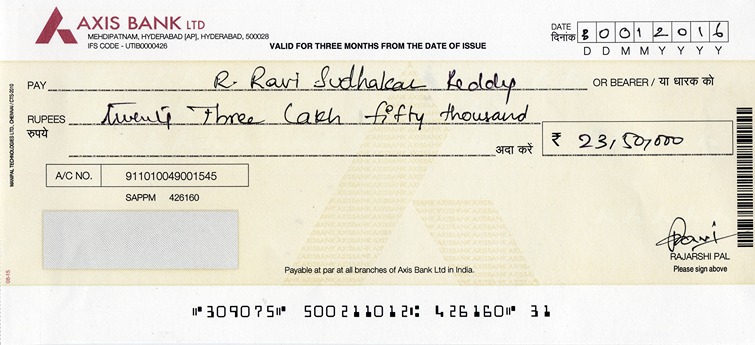 AXIS BANK LTD
MEHDIPATNAM, HYDERABAD [AP], HYDERABAD, 500028
IFS CODE - UTIB0000426
VALID FOR THREE MONTHS FROM THE DATE OF ISSUE
DATE
दिनांक 30012016
D D M M Y Y Y Y
PAY R. Ravi Sudhakar Reddy OR BEARER / या धारक को
RUPEES Twenty Three Lakh fifty thousand
रुपये
अदा करें ₹ 23,50,000
A/C NO. 911010049001545
SAPPM 426160
RAJARSHI PAL
Please sign above
Payable at par at all branches of Axis Bank Ltd in India.
MANIPAL TECHNOLOGIES LTD, CHENNAI / CTS-2010
08-15
⑈309075⑈ 500211012⑆ 426160⑈ 31